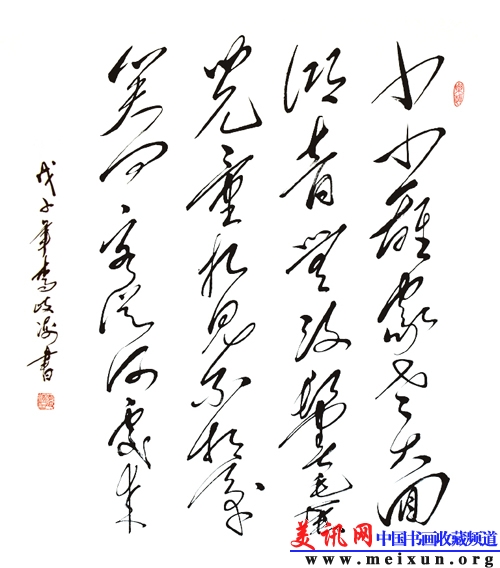 少小離家老大回
鄉音無改鬢毛
兒童相見不相識
笑問客從何處來
戊子年書
美讯网
中国书画收藏频道
www.meixun.org